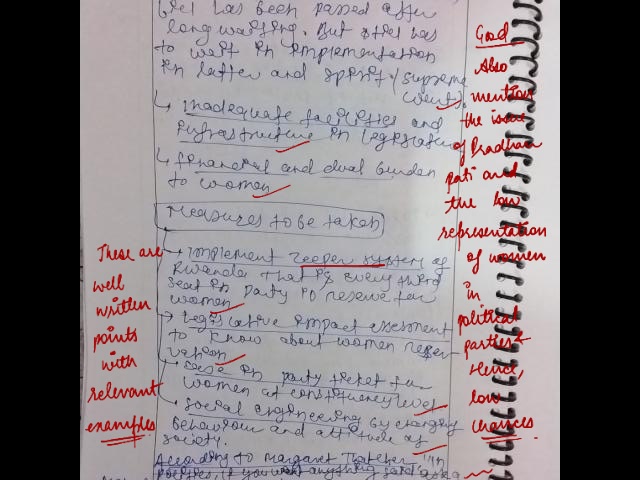 Bill has been passed after
long waiting. But still has
to wait in implementation
in latter and spirit. (Supreme
Court).
↳ inadequate facilities and
infrastructure in legislation
↳ financial and dual burden
to women
Measures to be taken
→ implement zeeper system of
Rwanda that is every third
seat in party is reserve for
women
→ Legislative impact assessment
to know about women reser
vation
→ in party ticket for
women at constituency level
→ Social engineering by changing
behaviour and attitude of
society.
According to Margaret Thatcher "in
politics, if you want anything said, ask a
Good
Also
mention
the issue
of Pradhan
pati and
the low
representation
of women
in
political
parties &
Hence,
low
chances
These are
well
written
points
with
relevant
examples